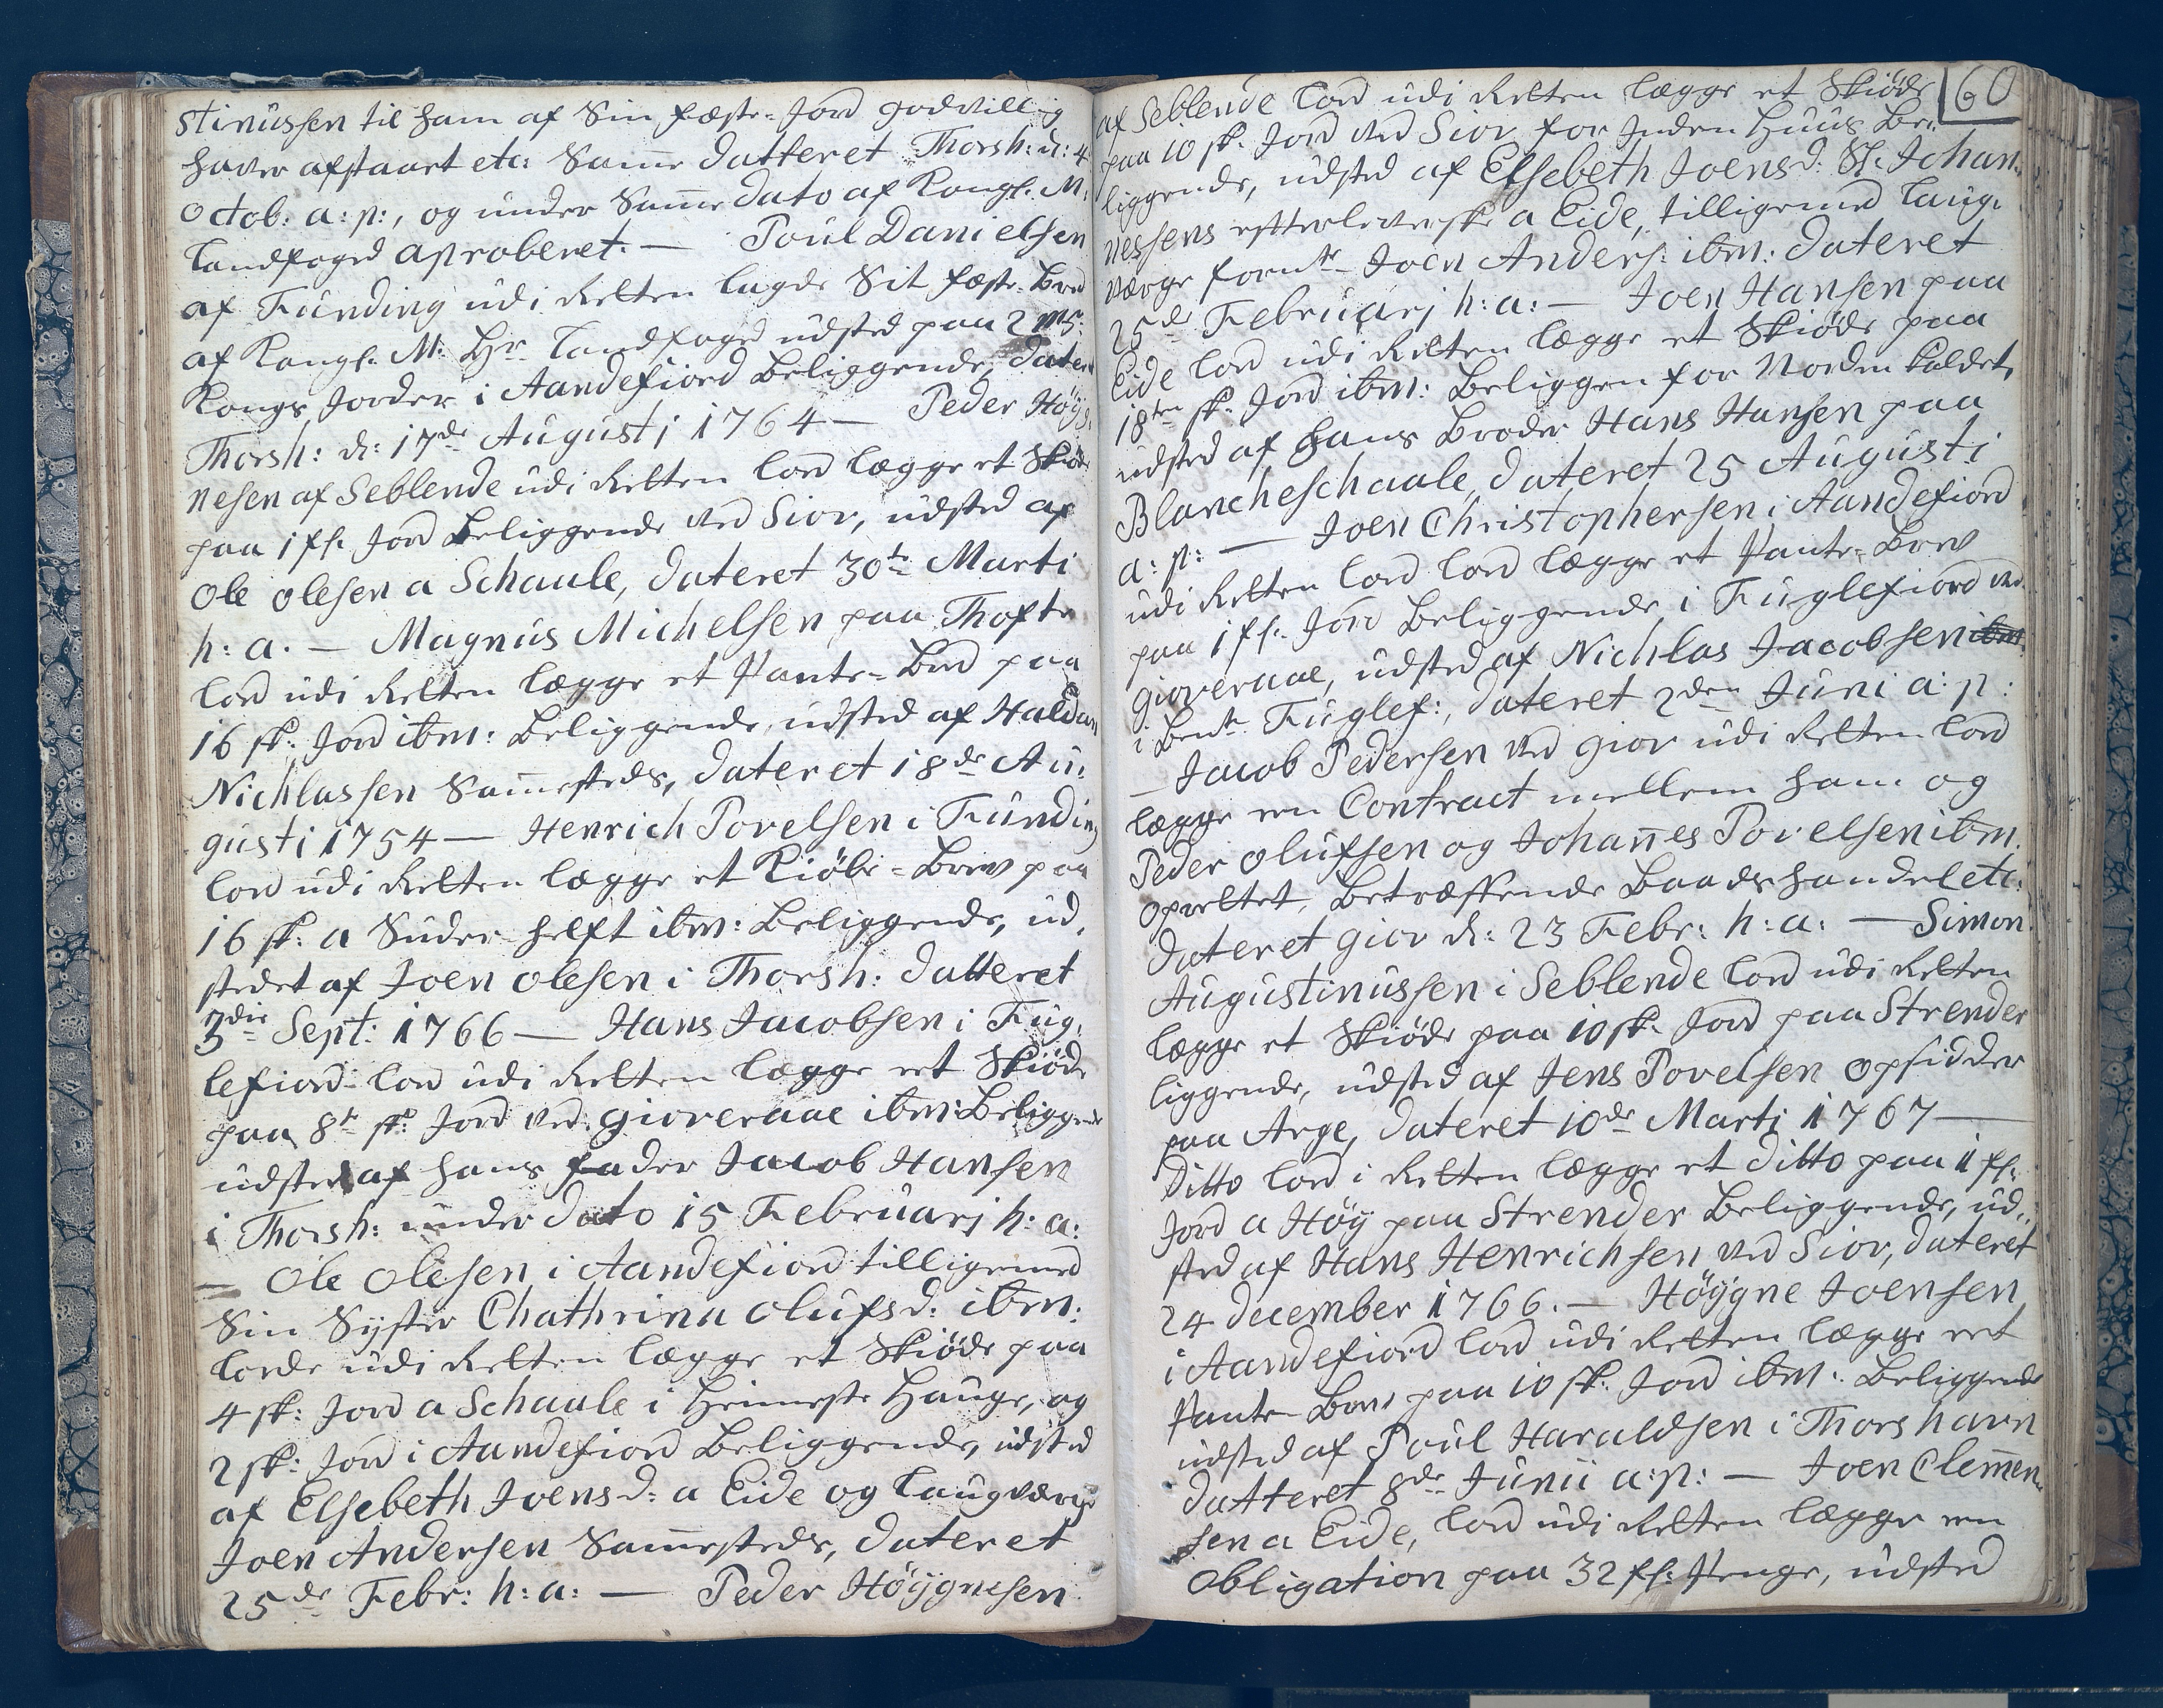 stinussen til ham af Sin fæste-Jord godvillig
haver afstaaet etc: Samme datteret Thorsh: d: 4
Octob: a: p:, og under Samme dato af Kongl. M:
Landfoged aproberet. — Poul Danielsen
af Funding udi Retten lagde Sit fæste-Brev
af Kongl. M: Hr Landfoged udsted paa 2 m
Kongs Jorder i Aandefiord Beliggende, dateret
Thorsh: d: 17de Augusti 1764 — Peder Höyg,
nesen af Seblende udi Retten lod lægge et Skiöde
paa 1 fl. Jord Beliggende ved Sior, udsted af
Ole Olesen a Schaale, dateret 30te Marti
h: a. — Magnus Michelsen paa Thofte
lod udi Retten lægge et Pante-Brev paa
16 sk: Jord ibm: Beliggende, udsted af Haldan
Nichlassen Sammesteds, dateret 18de Au,
gusti 1754 — Henrich Povelsen i Funding
lod udi Retten lægge et Kiöbe-Brev paa
16 sk: a Suder-helft ibm: Beliggende, ud,
stedet af Joen Olesen i Thorsh: datteret
3die Sept: 1766 — Hans Jacobsen i Fug,
lefiord lod udi Retten lægge et Skiöde
paa 8te sk: Jord ved gioveraae ibm: Beliggende
udsted af hans fader Jacob Hansen
i Thorsh: under dato 15 Februarj h: a:
— Ole Olesen i Aandefiord tilligemed
Sin Syster Chathrina Olufsd: ibm:
lode udi Retten lægge et Skiöde paa
4 sk: Jord a Schaale i Heimeste Hauge, og
2 sk: Jord i Aandefiord Beliggende, udsted
af Elsebeth Joensd: a Eide og Laugværge
Joen Andersen Sammesteds, dateret
25de Febr: h: a: — Peder Höygnesen
60
af Seblende lod udi Retten lægge et Skiöde
paa 10 sk. Jord ved Sior for Inden Huus Be,
liggende, udsted af Elsebeth Joensd: Sl. Johan,
nessens efterleverske a Eide, tilligemed Laug,
værge fornte Joen Anders: ibm: dateret
25de Februarj h: a: — Joen Hansen paa
Eide lod udi Retten lægge et Skiöde paa
18ten sk. Jord ibm: Beliggen for Norden kaldet,
udsted af hans Broder Hans Hansen paa
Blancheschaale, dateret 25 Augusti
a: p: — Joen Christophersen i Aandefiord
udi Retten lod lod lægge et Pante-Brev
paa 1 fl. Jord Beliggende i Fuglefiord ved
gioveraae, udsted af Nichlas Jacobsen ibm
i Bente Fuglef:, dateret 2den Juni a: p:
— Jacob Pedersen ved giov udi Retten lod
lægge en Contract mellem ham og
Peder Olufsen og Johannes Povelsen ibm.
oprettet, Betræffende Baads handel etc:
dateret giov d: 23 Febr: h: a: — Simon
Augustinussen i Seblende lod udi Retten
lægge et Skiöde paa 10 sk. Jord paa Strender
liggende, udsted af Jens Povelsen Opsidder
paa Arge, dateret 10de Marti 1767 —
Ditto lod i Retten lægge et ditto paa 1 fl.
Jord a Höy paa Strender Beliggende, ud,
sted af Hans Henrichsen ved Sior, dateret
24 december 1766. — Höygne Joensen
i Aandefiord lod udi Retten lægge et
Pante-Brev paa 10 sk. Jord ibm: Beliggende
udsted af Poul Haraldsen i Thorshavn
datteret 8de Junii a: p: — Joen Clemen,
sen a Eide, lod udi Retten lægge en
Obligation paa 32 fl: Penge, udsted